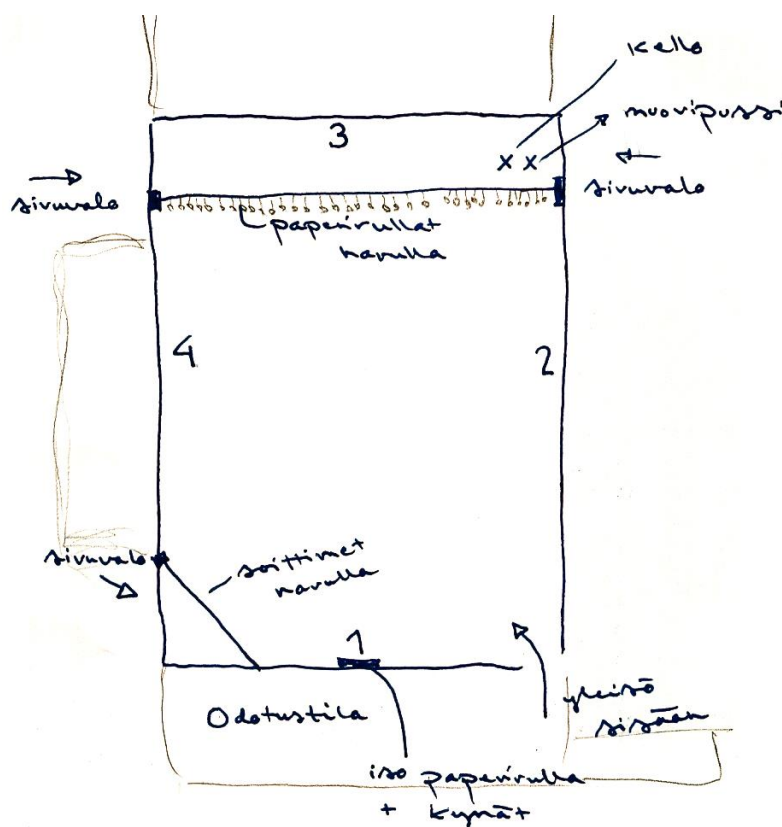 kello
muovipussi
3
x x
sivuvalo
sivuvalo
paperirullat
narulla
4
2
sivuvalo
soittimet
narulla
1
Odotustila
yleisö
sisään
iso paperirulla
+ kynät